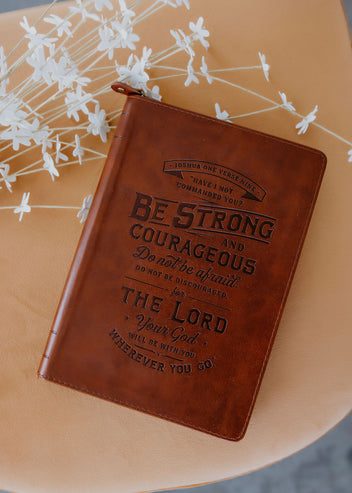 JOSHUA ONE VERSE NINE
"HAVE I NOT
COMMANDED YOU?
BE STRONG
AND
COURAGEOUS
Do not be afraid
DO NOT BE DISCOURAGED,
for
THE LORD
Your God
WILL BE WITH YOU
WHEREVER YOU GO"